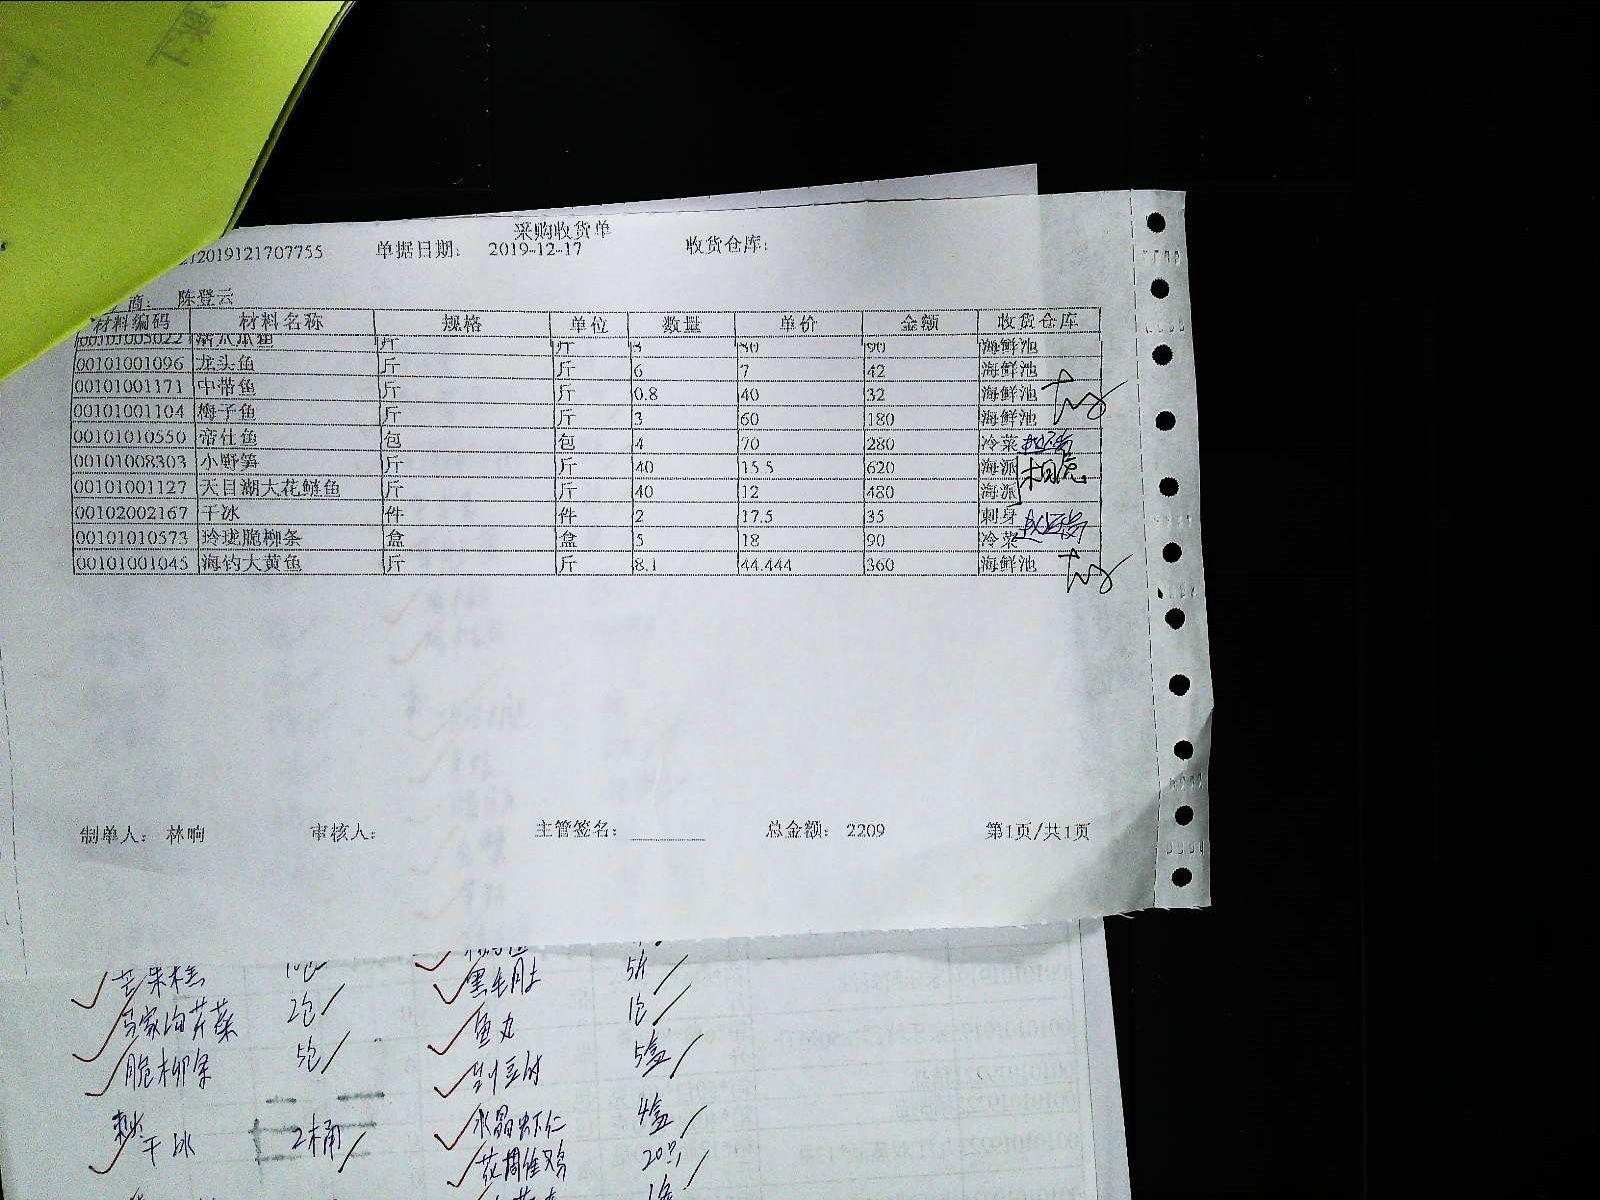 采购收货单
2019121707755 单据日期: 2019-12-17 收货仓库:
商: 陈登云
材料编码 材料名称 规格 单位 数量 单价 金额 收货仓库
00101005022 斤 斤 3 30 90 海鲜池
00101001096 龙头鱼 斤 斤 6 7 42 海鲜池
00101001171 中带鱼 斤 斤 0.8 40 32 海鲜池
00101001104 梅子鱼 斤 斤 3 60 180 海鲜池
00101010550 帝仕鱼 包 包 4 70 280 冷菜
00101008303 小野笋 斤 斤 40 15.5 620 海派
00101001127 天目湖大花鲢鱼 斤 斤 40 12 480 海派
00102002167 干冰 件 件 2 17.5 35 刺身
00101010573 玲珑脆柳条 盒 盒 5 18 90 冷菜
00101001045 海钓大黄鱼 斤 斤 8.1 44.444 360 海鲜池
制单人: 林响 审核人: 主管签名: 总金额: 2209 第1页/共1页
芒果糕 10包 黑毛肚 5斤
马家沟芹菜 2包 鱼丸 1包
脆柳条 5包 5盒
干冰 2桶 水晶虾仁 4盒